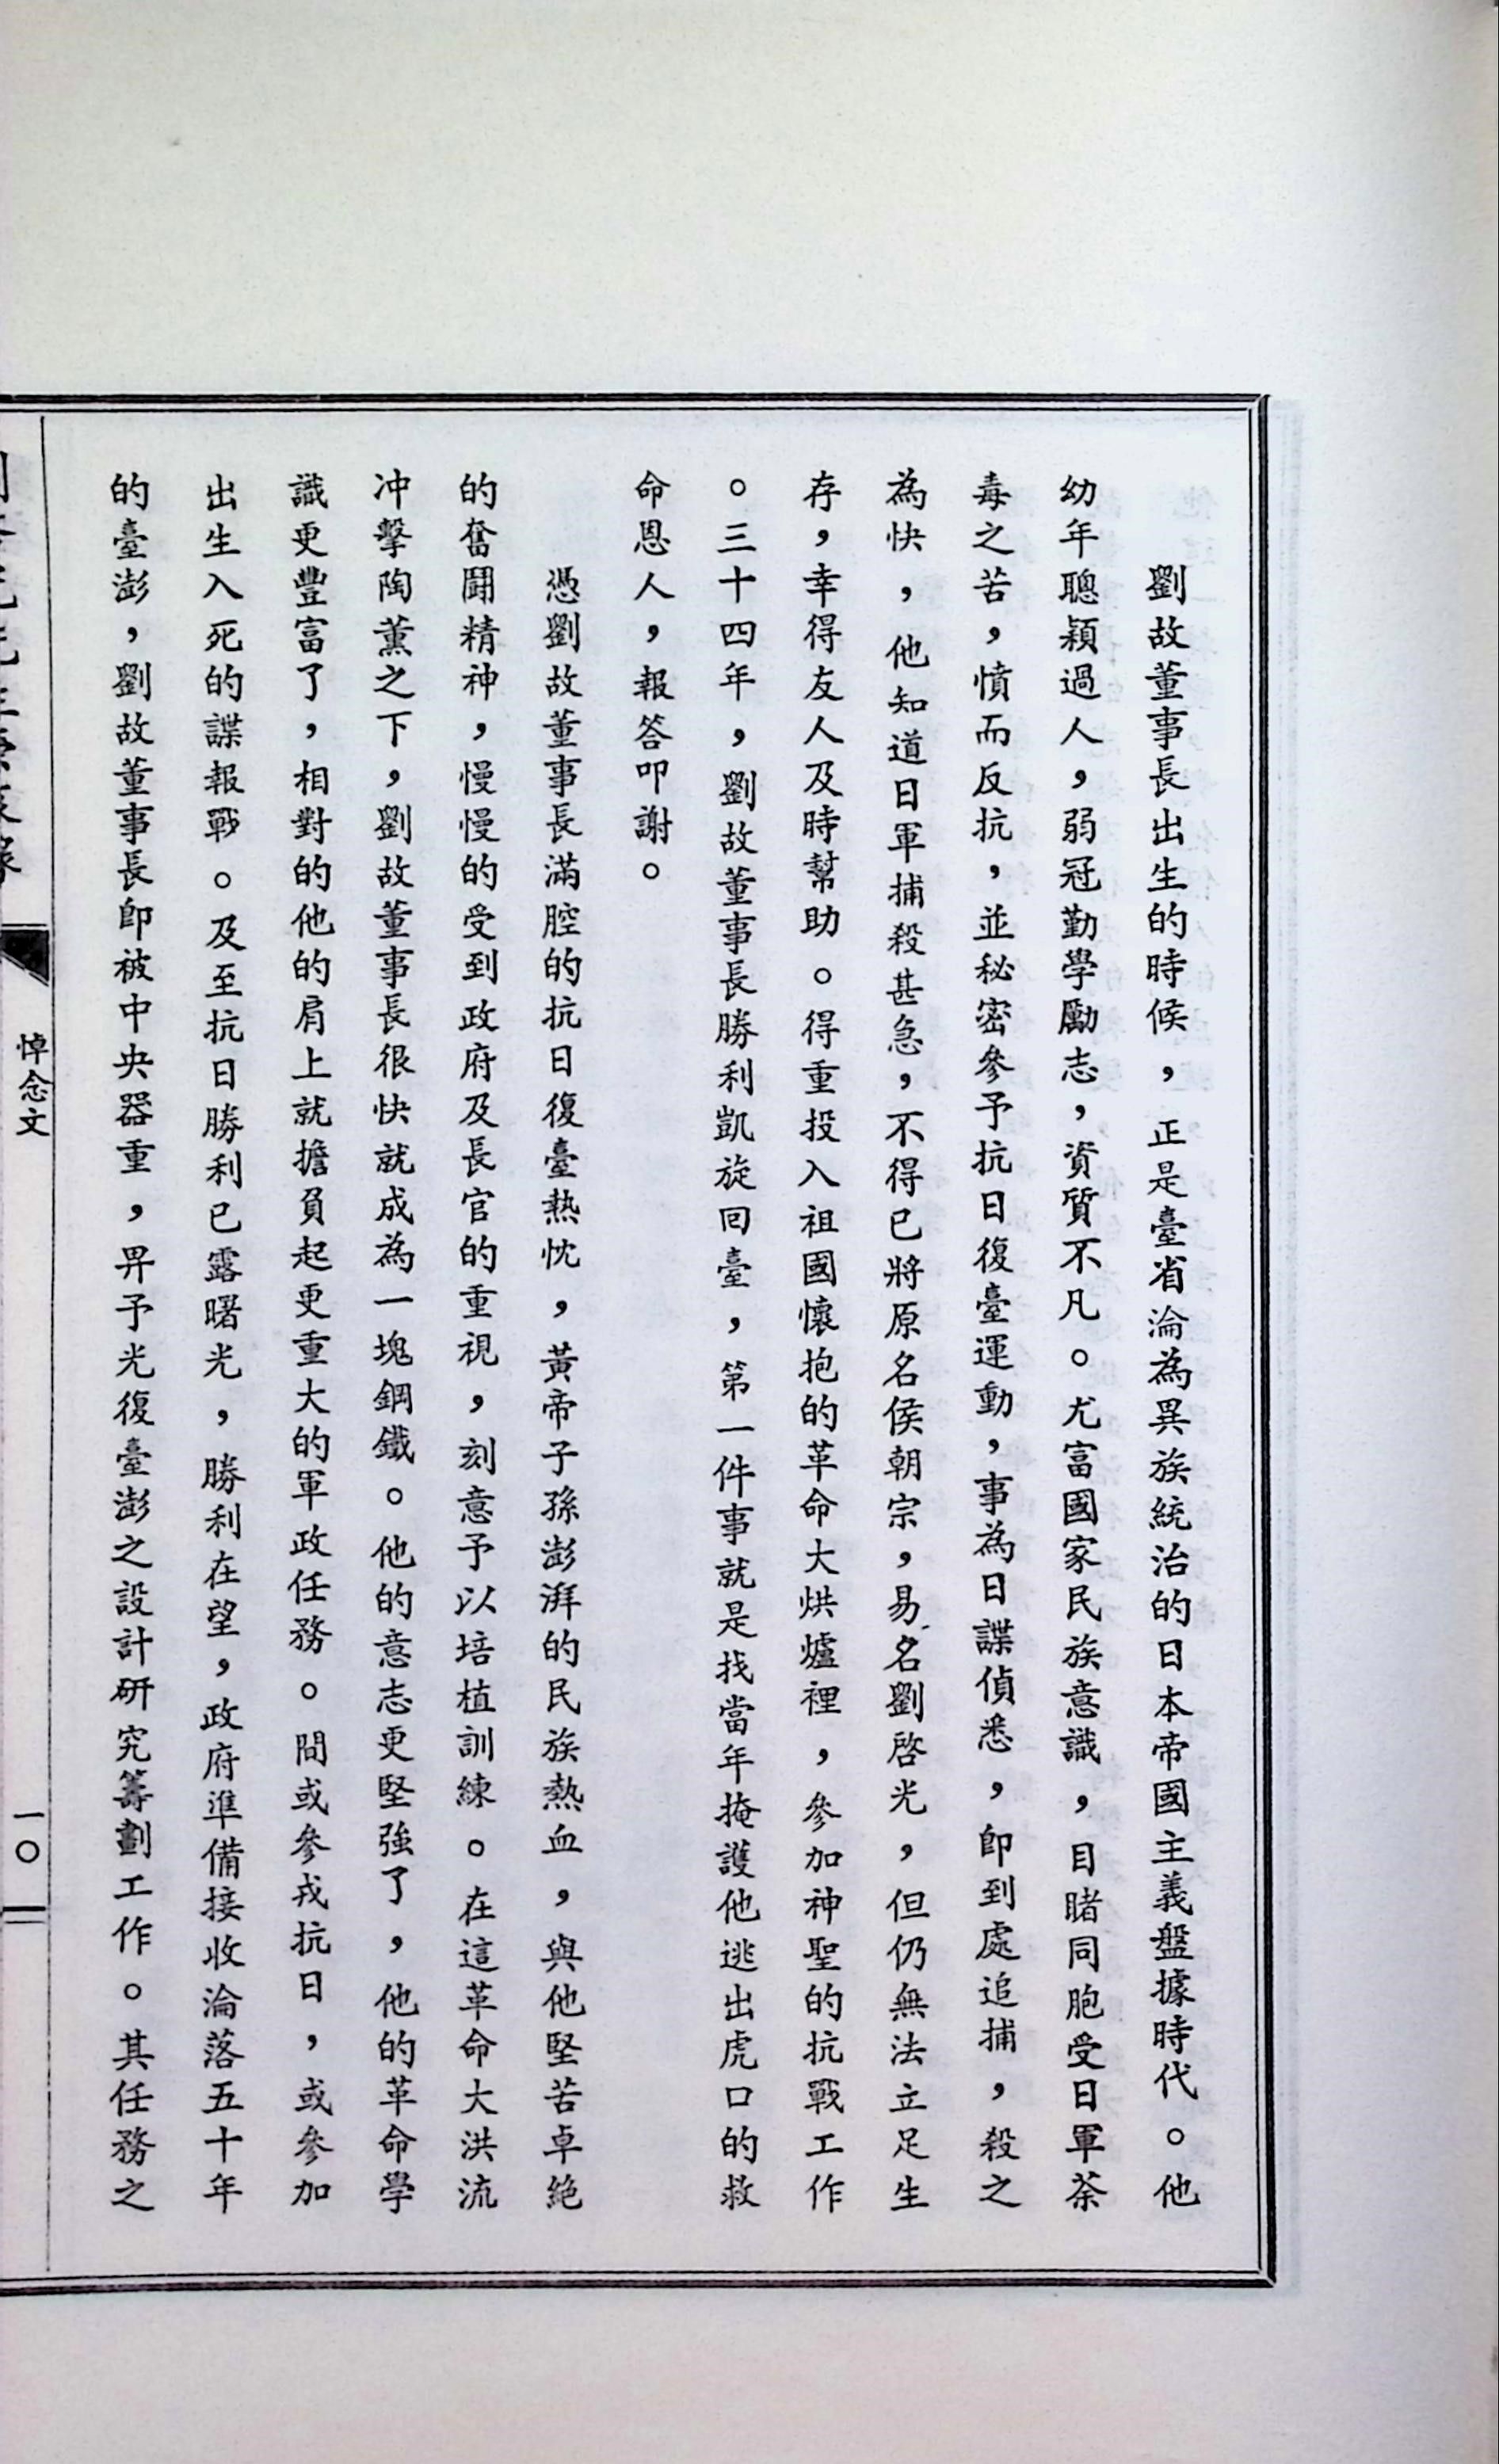 劉故董事長出生的時候，正是臺省淪為異族統治的日本帝國主義盤據時代。他
幼年聰穎過人，弱冠勤學勵志，資質不凡。尤富國家民族意識，目睹同胞受日軍荼
毒之苦，憤而反抗，並秘密參予抗日復臺運動，事為日諜偵悉，即到處追捕，殺之
為快，他知道日軍捕殺甚急，不得已將原名侯朝宗，易名劉啓光，但仍無法立足生
存，幸得友人及時幫助。得重投入祖國懷抱的革命大烘爐裡，參加神聖的抗戰工作
。三十四年，劉故董事長勝利凱旋回臺，第一件事就是找當年掩護他逃出虎口的救
命恩人，報答叩謝。
憑劉故董事長滿腔的抗日復臺熱忱，黃帝子孫澎湃的民族熱血，與他堅苦卓絕
的奮鬪精神，慢慢的受到政府及長官的重視，刻意予以培植訓練。在這革命大洪流
冲擊陶薰之下，劉故董事長很快就成為一塊鋼鐵。他的意志更堅強了，他的革命學
識更豐富了，相對的他的肩上就擔負起更重大的軍政任務。間或參戎抗日，或參加
出生入死的諜報戰。及至抗日勝利已露曙光，勝利在望，政府準備接收淪落五十年
的臺澎，劉故董事長即被中央器重，畀予光復臺澎之設計研究籌劃工作。其任務之
悼念文
一〇